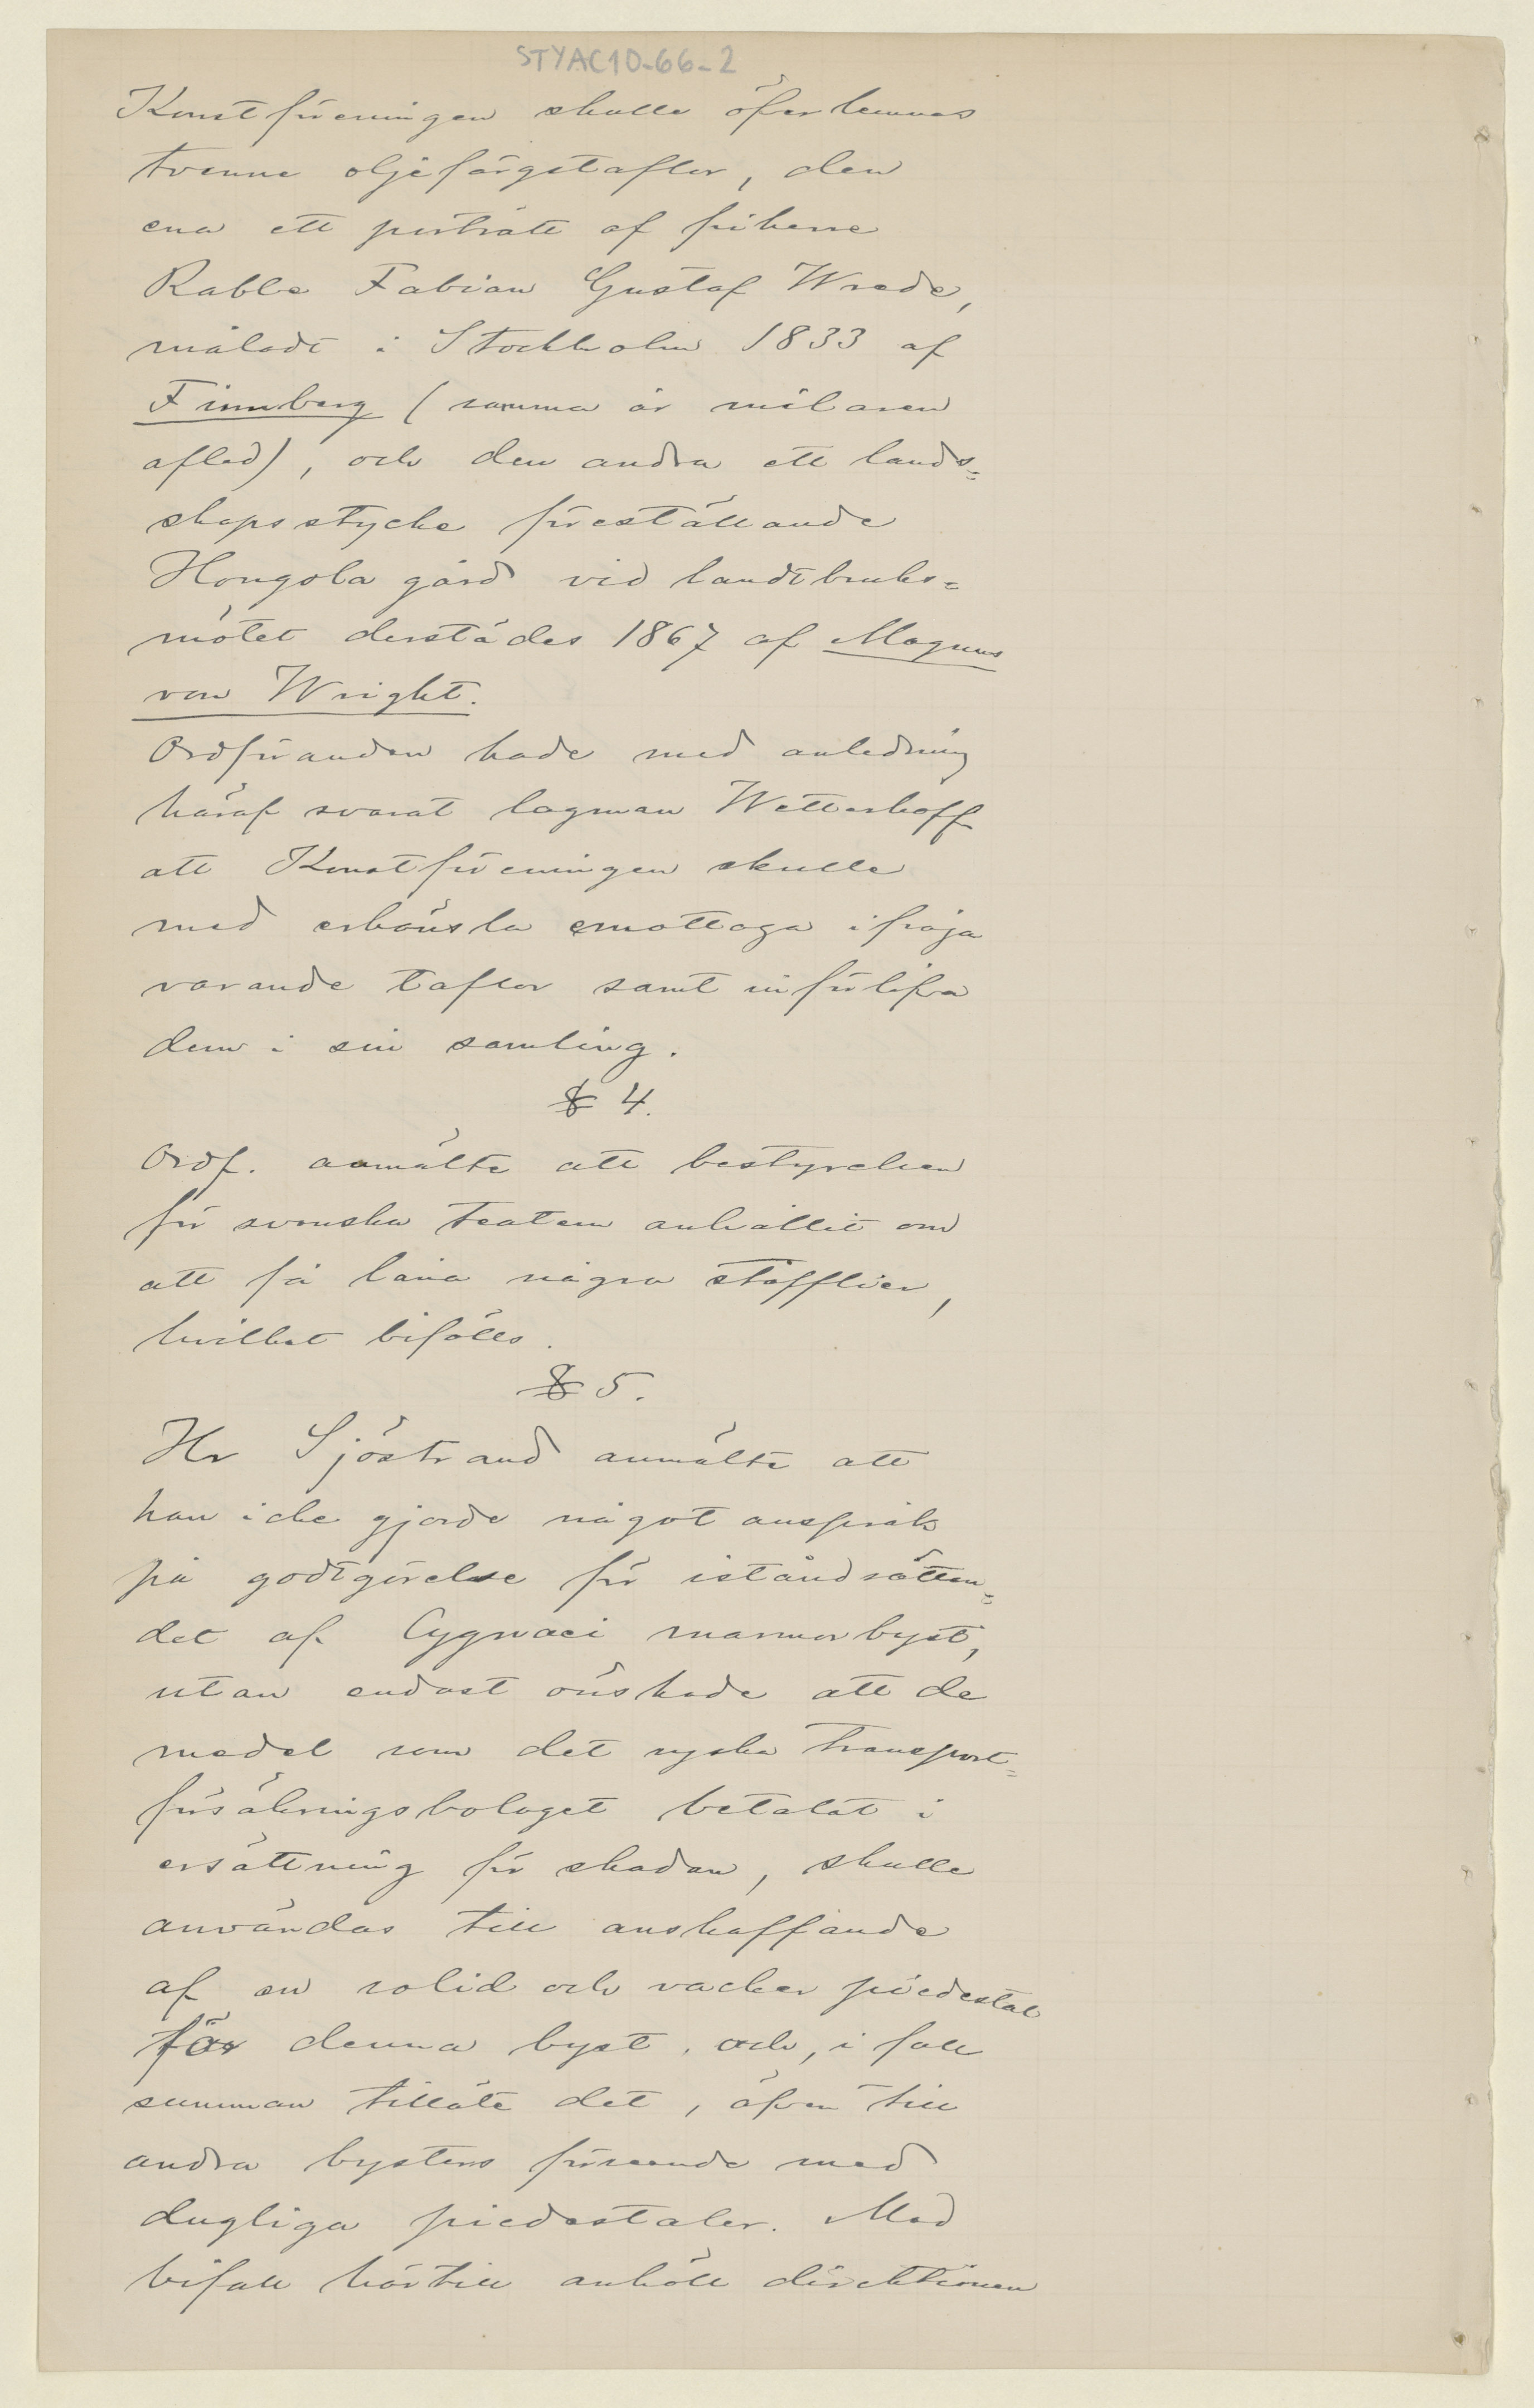 STYAC10-66-2
Konstföreningen skulle öfverlemnas
tvenne oljefärgstaflor, den
ena ett porträtt af friherre
Rabbe Fabian Gustaf Wrede,
måladt i Stockholm 1833 af
Finnberg (samma år målaren
afled), och den andra ett lands=
skapsstycke föreställande
Hongola gård vid landtbruks=
mötet derstädes 1867 af Magnus
von Wright.
Ordföranden hade med anledning
häraf svarat lagman Wetterhoff
att Konstföreningen skulle
med erkänsla emottaga ifråga
varande taflor samt införlifva
dem i sin samling.
§ 4.
Ordf. anmälte att bestyrelsen
för svenska teatern anhållit om
att få låna några stafflier,
hvilket bifölls.
§ 5.
Hr Sjöstrand anmälte att
han icke gjorde något anspråk
på godtgörelse för iståndsättan=
det af Cygnaei marmorbyst,
utan endast önskade att de
medel som det ryska transport=
försäkringsbolaget betalat i
ersättning för skadan, skulle
användas till anskaffande
af en solid och vacker piedestal
för denna byst, och, i fall
summan tilläte det, äfven till
andra bysters förseende med
dugliga piedestaler. Med
bifall härtill anhöll direktionen